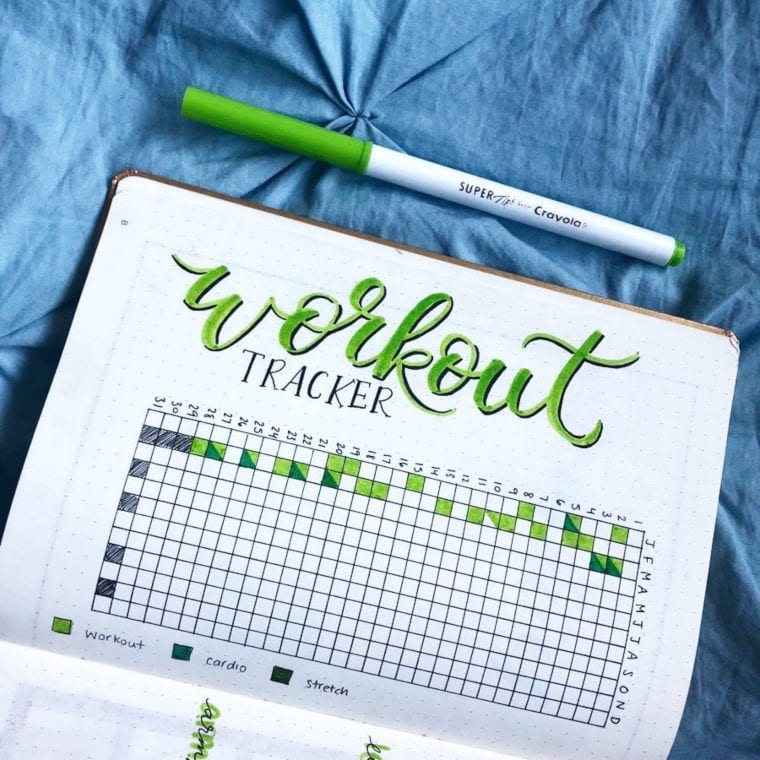 SUPER Tips Crayola
8
workout
TRACKER
31 30 29 28 27 26 25 24 23 22 21 20 19 18 17 16 15 14 13 12 11 10 9 8 7 6 5 4 3 2 1
J F M A M J J A S O N D
workout
cardio
stretch